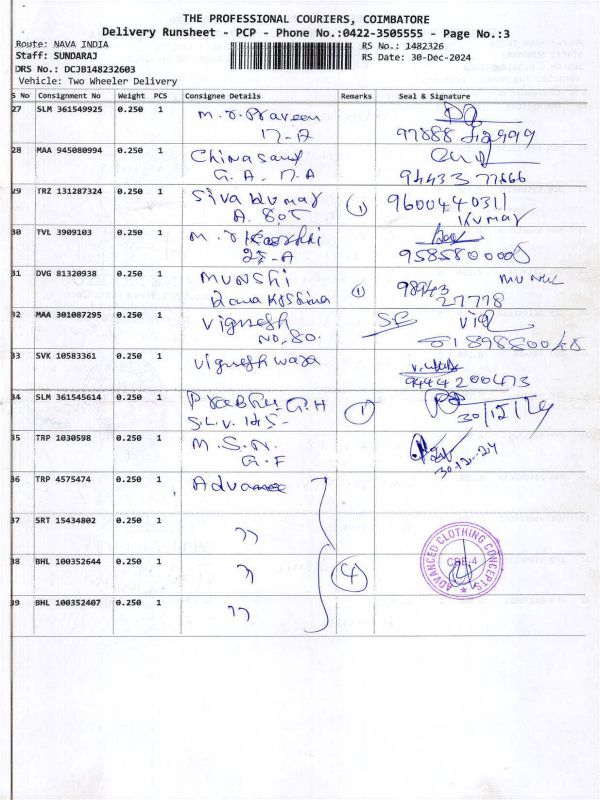 THE PROFESSIONAL COURIERS, COIMBATORE
Delivery Runsheet - PCP - Phone No.:0422-3505555 - Page No.:3
Route: NAVA INDIA
Staff: SUNDARAJ
DRS No.: DCJB148232603
Vehicle: Two Wheeler Delivery
RS No.: 1482326
RS Date: 30-Dec-2024
S No Consignment No Weight PCS Consignee Details Remarks Seal & Signature
27 SLM 361549925 0.250 1 M.S. Praveen
17-A
28 MAA 945080994 0.250 1
G.A. 17.A
29 TRZ 131287324 0.250 1 Siva Kumar 1 9600440311
A. 805 Kumar
30 TVL 3909103 0.250 1
9585800005
31 DVG 81320938 0.250 1 MUNSHI 1 98943
Rama Krishna 27778
32 MAA 301087295 0.250 1 Vignesh
NO. 80.
33 SVK 10583361 0.250 1
9444200473
34 SLM 361545614 0.250 1 Prabhu G.H 1
S.L.V. 30/12/24
35 TRP 1030598 0.250 1 M.S.N.
G.F 30.12.24
36 TRP 4575474 0.250 1 Advance
37 SRT 15434802 0.250 1 ,,
38 BHL 100352644 0.250 1 ,, 4
39 BHL 100352407 0.250 1 ,,
ADVANCED CLOTHING CONCEPTS
CBE-4